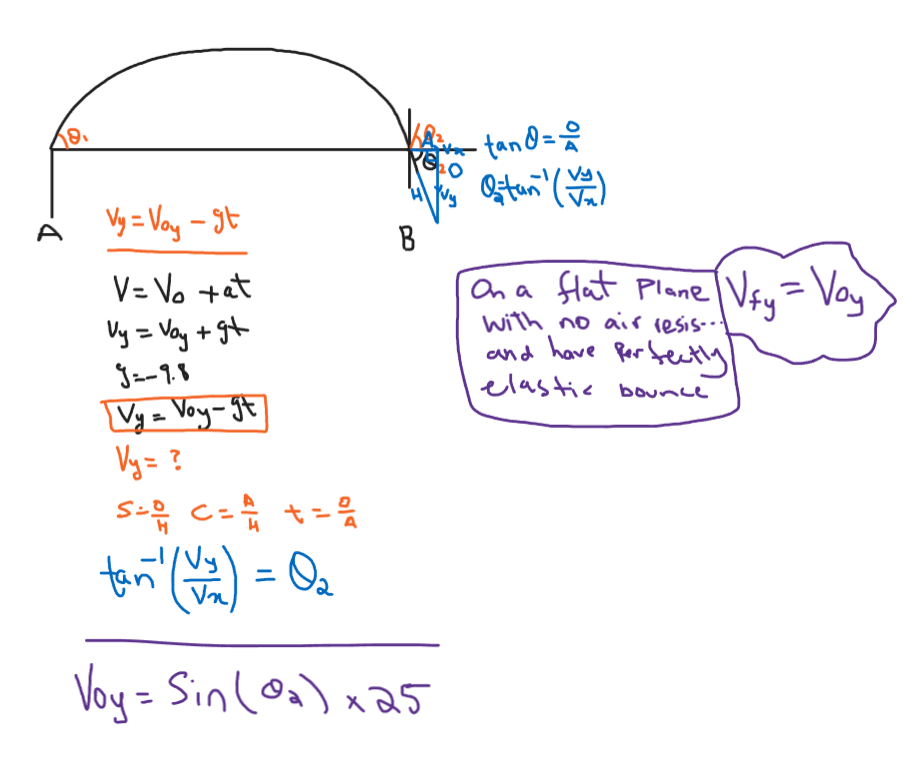 θ₁
θ₂
A
Vx
θ₂
O
H
Vy
tanθ = O/A
θ₂ = tan⁻¹(Vy/Vx)
A
B
Vy = Voy - gt
V = Vo + at
Vy = Voy + gt
g = -9.8
Vy = Voy - gt
Vy = ?
S = O/H C = A/H t = O/A
tan⁻¹(Vy/Vx) = θ₂
Voy = Sin(θ₂) x 25
On a flat Plane
with no air resis...
and have Perfectly
elastic bounce
Vfy = Voy